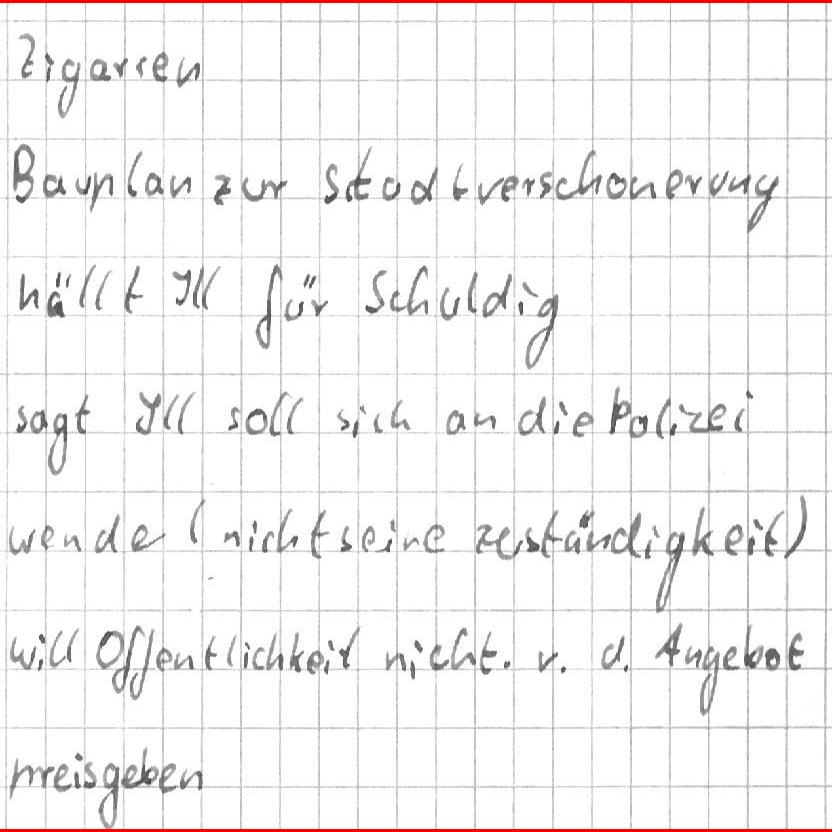 Zigarren
Bauplan zur Stadtverschonerung
hällt Ill für Schuldig
sagt Ill soll sich an die Polizei
wende (nicht seine zuständigkeit)
will Offentlichkeit nicht. v. d. Angebot
preisgeben